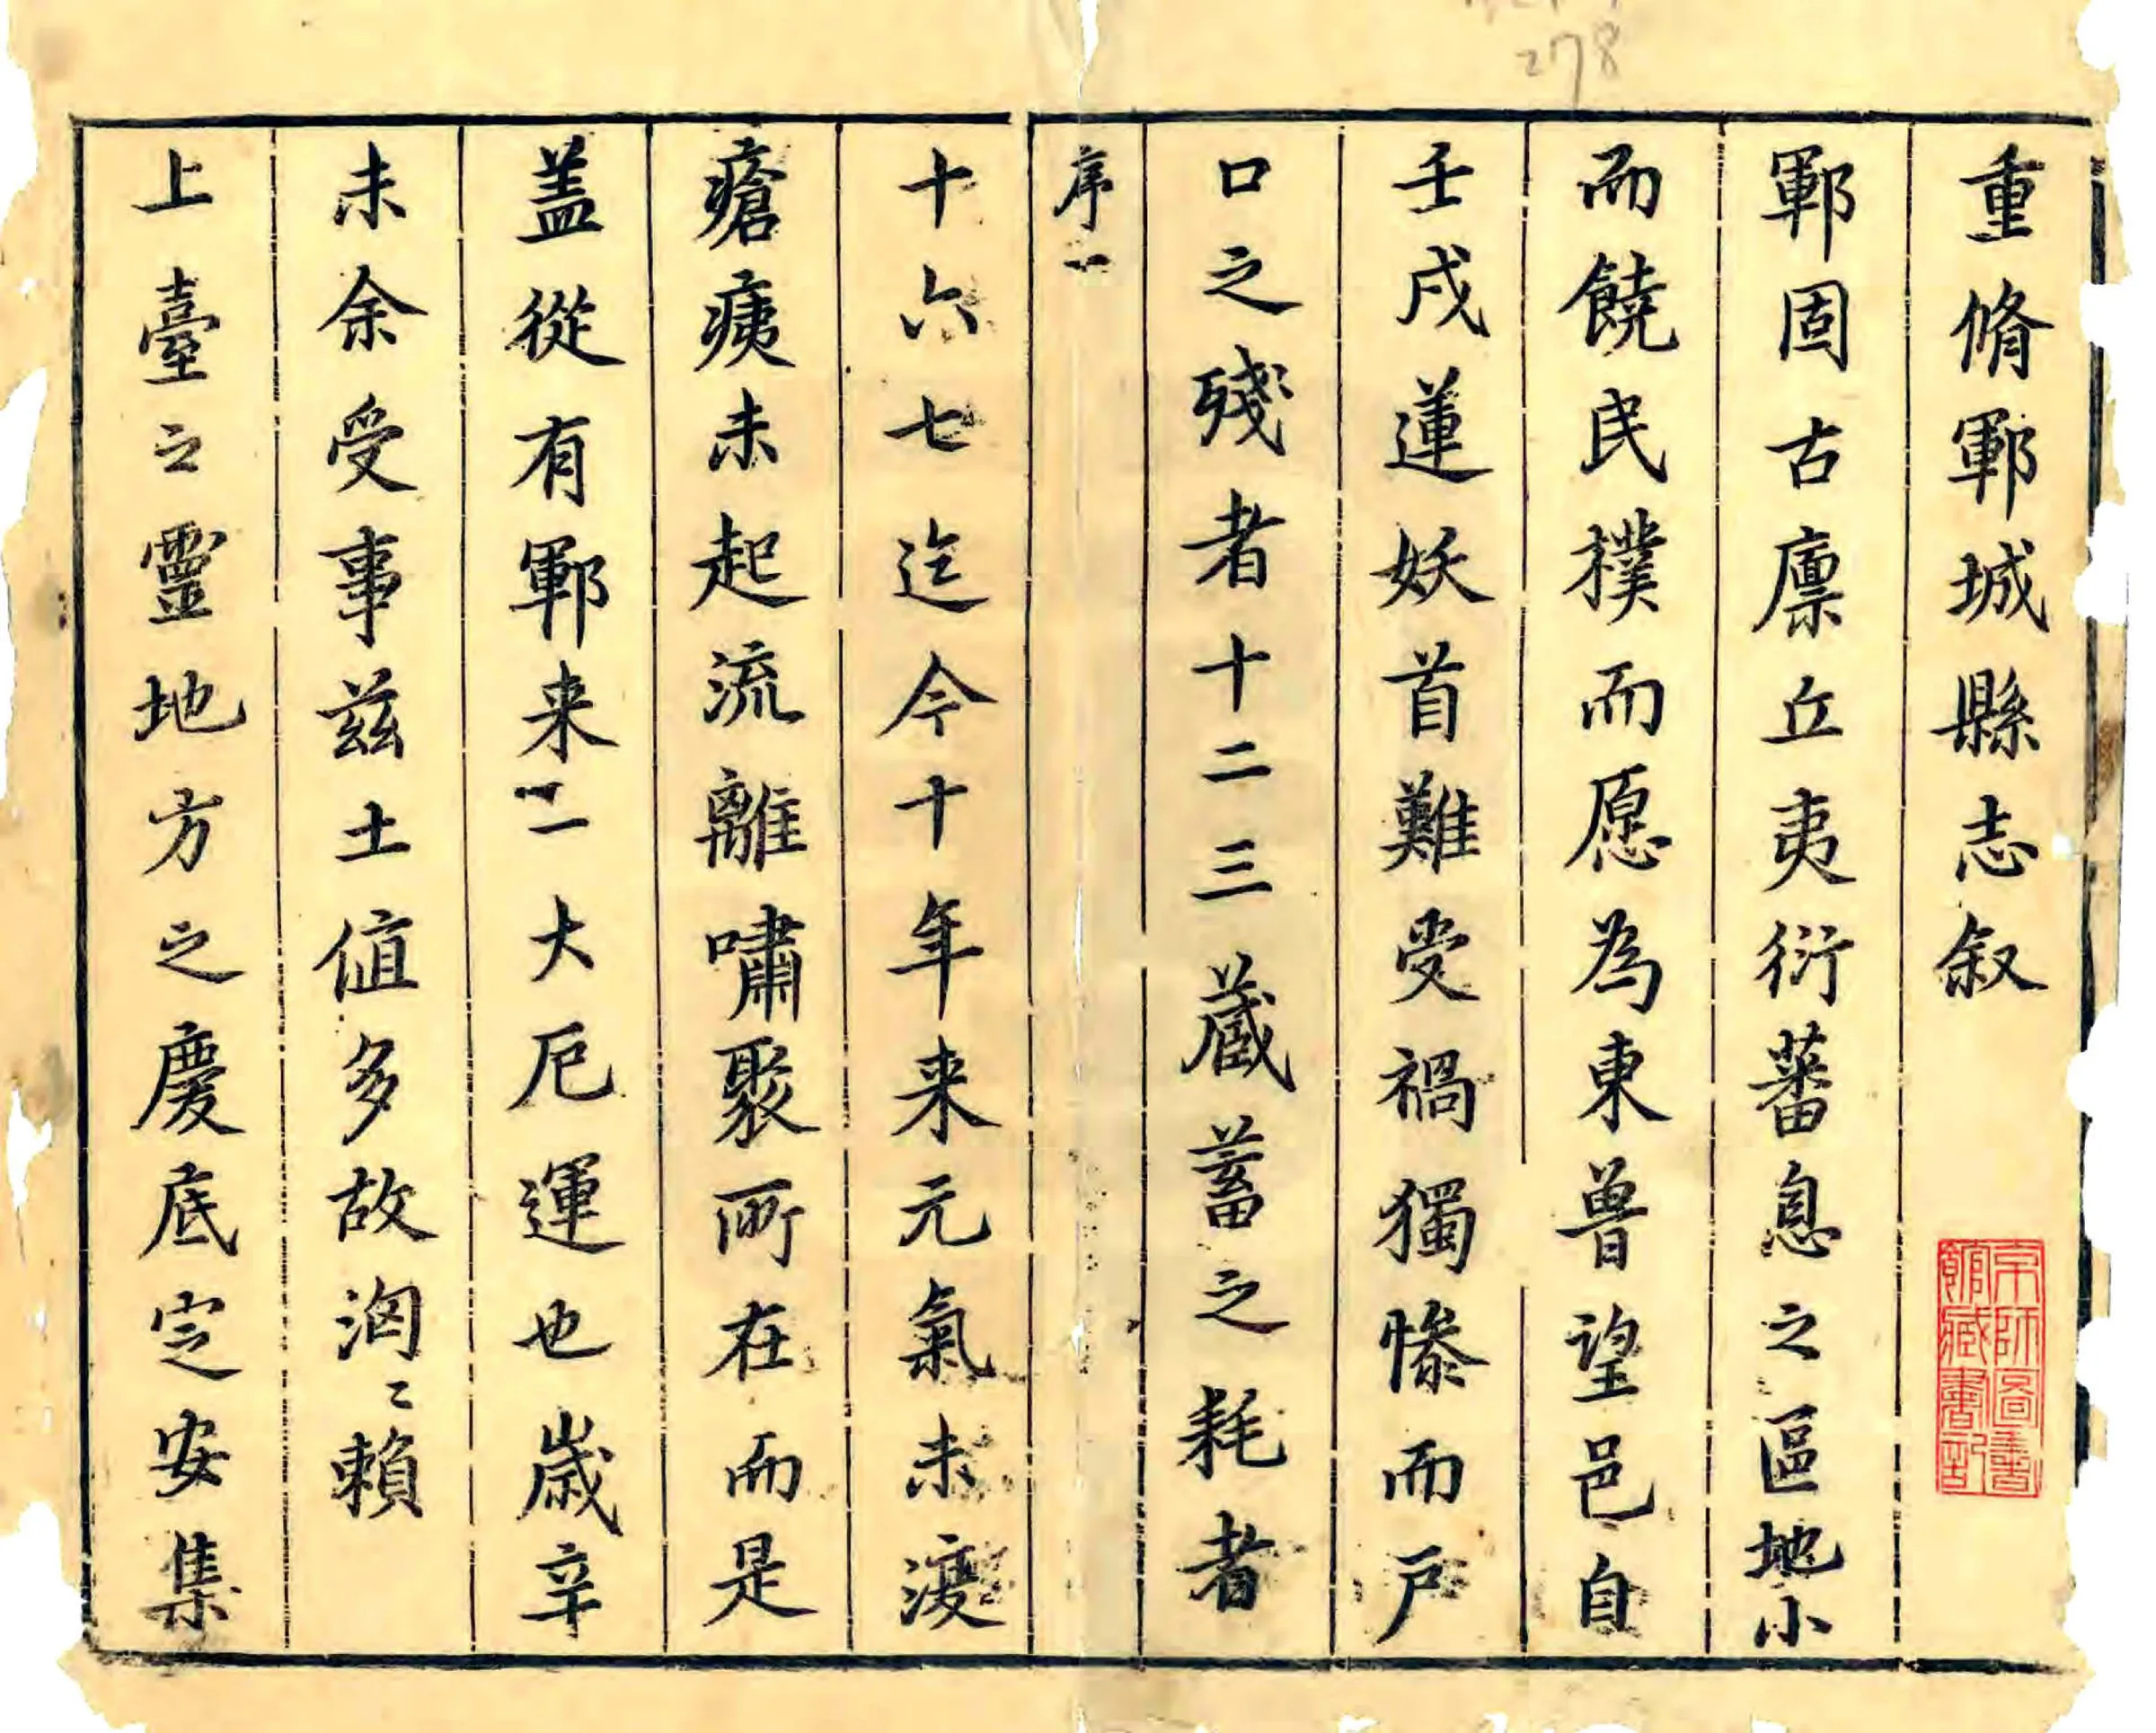 278
重脩鄆城縣志叙
鄆固古廪丘夷衍蕃息之區地小
而饒民樸而愿為東魯望邑自
壬戌蓮妖首難受禍獨慘而戶
口之殘者十二三蔵蓄之耗者
序一
十六七迄今十年来元氣未澓
瘡痍未起流離嘯聚所在而是
盖從有鄆来一大厄運也歲辛
未余受事兹土值多故洶〻賴
上臺之靈地方之慶底定安集
京師圖書
館藏書記